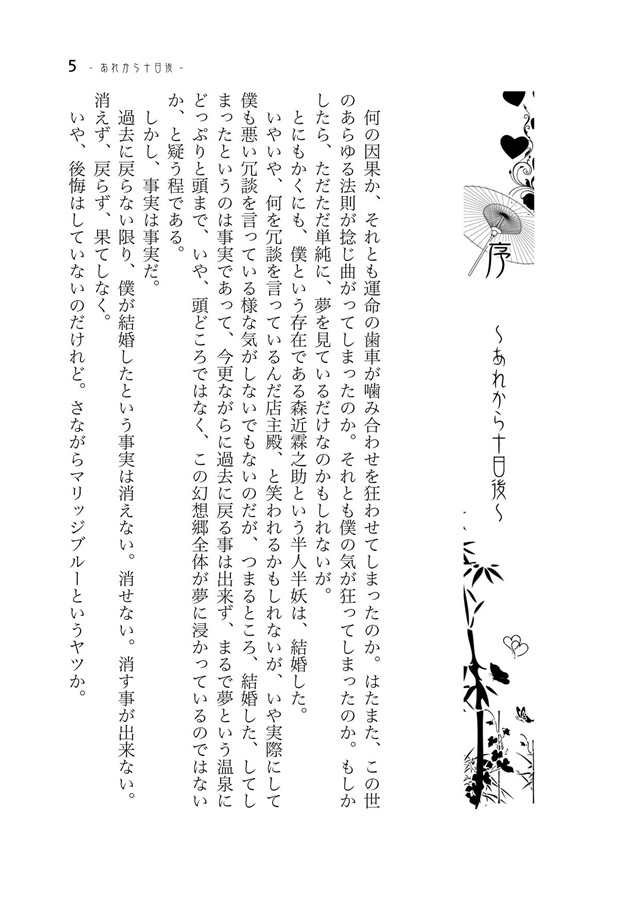 5 - あれから十日後 -
序
～あれから十日後～
何の因果か、それとも運命の歯車が噛み合わせを狂わせてしまったのか。はたまた、この世
のあらゆる法則が捻じ曲がってしまったのか。それとも僕の気が狂ってしまったのか。もしか
したら、ただただ単純に、夢を見ているだけなのかもしれないが。
とにもかくにも、僕という存在である森近霖之助という半人半妖は、結婚した。
いやいや、何を冗談を言っているんだ店主殿、と笑われるかもしれないが、いや実際にして
僕も悪い冗談を言っている様な気がしないでもないのだが、つまるところ、結婚した、してし
まったというのは事実であって、今更ながらに過去に戻る事は出来ず、まるで夢という温泉に
どっぷりと頭まで、いや、頭どころではなく、この幻想郷全体が夢に浸かっているのではない
か、と疑う程である。
しかし、事実は事実だ。
過去に戻らない限り、僕が結婚したという事実は消えない。消せない。消す事が出来ない。
消えず、戻らず、果てしなく。
いや、後悔はしていないのだけれど。さながらマリッジブルーというヤツか。